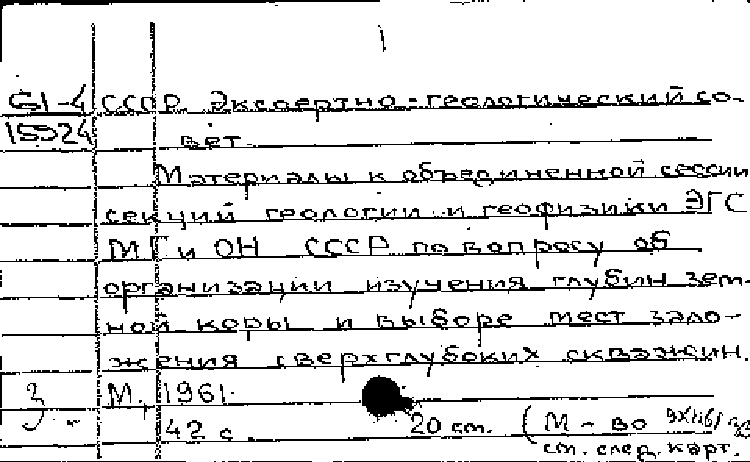 G1-4 СССР. Экспертно-геологический со-
15924 вет.
Материалы к объединенной сессии
секций геологии и геофизики ЭГС
МГ и ОН СССР по вопросу об
организации изучения глубин зем-
ной коры и выборе мест зало-
жения сверхглубоких скважин.
М., 1961.
42 с. 20 см. (М-во
см. след. карт.